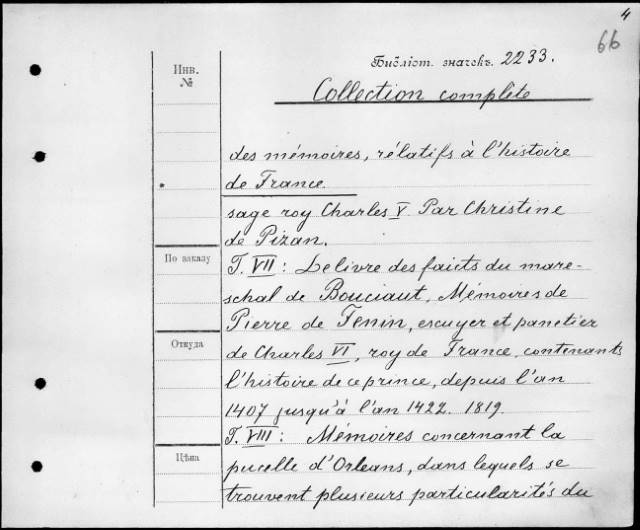 4
66
Библіот. значекъ 2233.
Инв. №
Collection complete
des mémoires, rélatifs à l'histoire
de France.
sage roy Charles V. Par Christine
de Pizan.
По заказу
T. VII: Le livre des faicts du mare-
schal de Bouciaut, Mémoires de
Pierre de Fenin, escuyer et panetier
Откуда
de Charles VI, roy de France, contenants
l'histoire de ce prince, depuis l'an
1407 jusqu'à l'an 1422. 1819.
T. VIII: Mémoires concernant la
Цѣна
pucelle d'Orleans, dans lequels se
trouvent plusieurs particularités du